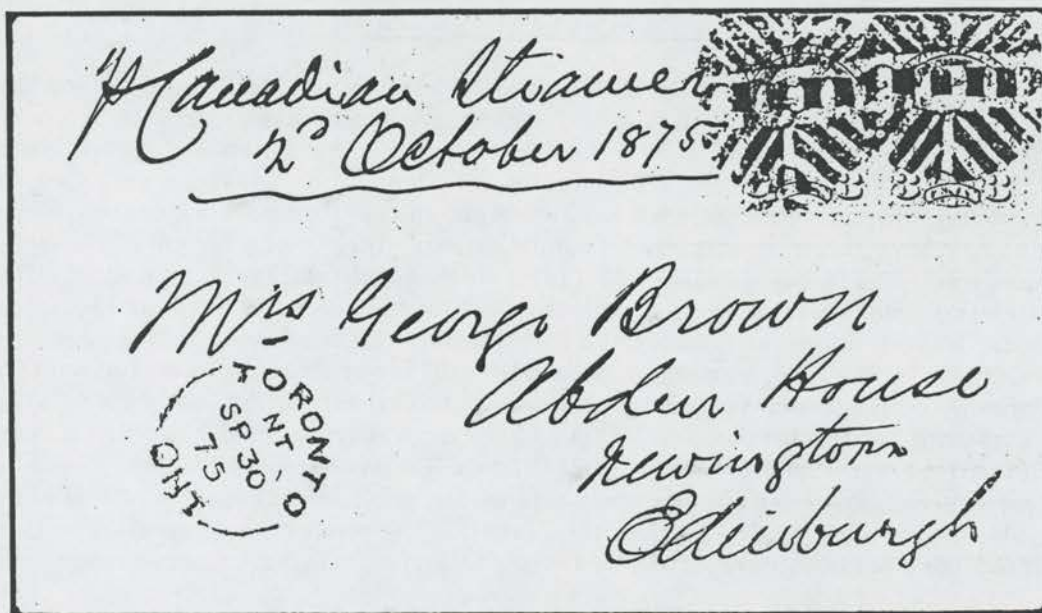 p Canadian Steamer
2d October 1875
3 3 3 3
Mrs George Brown
Abden House
Newington
Edinburgh
TORONTO
NT
SP 30
75
ONT